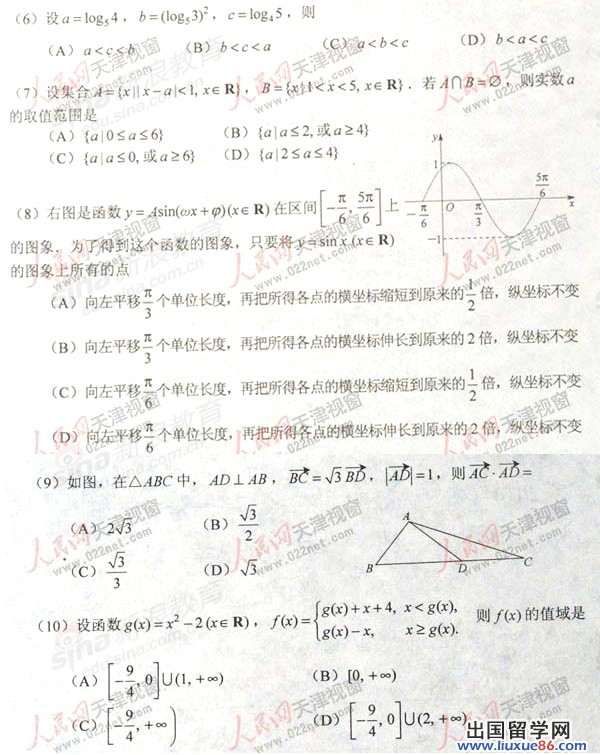 （6）设 a = log₅4，b = (log₅3)²，c = log₄5，则
（A） a < c < b （B） b < c < a （C） a < b < c （D） b < a < c
（7）设集合 A = {x || x − a| < 1, x ∈ R}，B = {x | 1 < x < 5, x ∈ R}．若 A∩B = ∅，则实数 a
的取值范围是
（A）{a | 0 ≤ a ≤ 6} （B）{a | a ≤ 2, 或 a ≥ 4}
（C）{a | a ≤ 0, 或 a ≥ 6} （D）{a | 2 ≤ a ≤ 4}
（8）右图是函数 y = Asin(ωx + φ)(x ∈ R) 在区间 [−π/6, 5π/6] 上
的图象．为了得到这个函数的图象，只要将 y = sin x (x ∈ R)
的图象上所有的点
y 1 −π/6 O π/3 5π/6 x −1
（A）向左平移 π/3 个单位长度，再把所得各点的横坐标缩短到原来的 1/2 倍，纵坐标不变
（B）向左平移 π/3 个单位长度，再把所得各点的横坐标伸长到原来的 2 倍，纵坐标不变
（C）向左平移 π/6 个单位长度，再把所得各点的横坐标缩短到原来的 1/2 倍，纵坐标不变
（D）向左平移 π/6 个单位长度，再把所得各点的横坐标伸长到原来的 2 倍，纵坐标不变
（9）如图，在△ABC 中，AD ⊥ AB，BC→ = √3 BD→，|AD→| = 1，则 AC→ · AD→ =
（A）2√3 （B）√3/2
（C）√3/3 （D）√3
A B D C
（10）设函数 g(x) = x² − 2 (x ∈ R)，f(x) = { g(x) + x + 4, x < g(x), g(x) − x, x ≥ g(x). 则 f(x) 的值域是
（A）[−9/4, 0]∪(1, +∞) （B）[0, +∞)
（C）[−9/4, +∞) （D）[−9/4, 0]∪(2, +∞)
人民网 天津视窗
www.022net.com
新浪教育
edu.sina.com
出国留学网
www.liuxue86.com